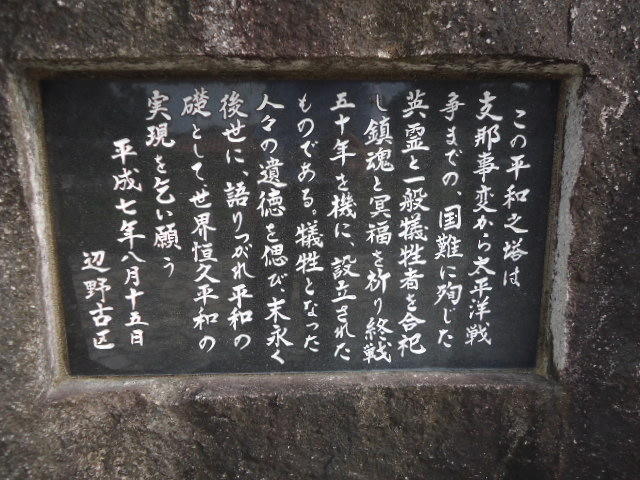 この平和之塔は
支那事変から太平洋戦
争までの、国難に殉じた
英霊と一般犠牲者を合祀
し鎮魂と冥福を祈り終戦
五十年を機に、設立された
ものである。犠牲となった
人々の遺徳を偲び、末永く
後世に、語りつがれ平和の
礎として、世界恒久平和の
実現を乞い願う
平成七年八月十五日
辺野古区